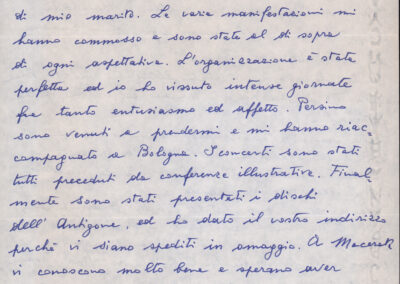 di mio marito. Le varie manifestazioni mi
hanno commosso e sono state al di sopra
di ogni aspettativa. L'organizzazione è stata
perfetta ed io ho vissuto intense giornate
fra tanto entusiasmo ed affetto. Persino
sono venuti a prendermi e mi hanno riac=
compagnato a Bologna. I concerti sono stati
tutti preceduti da conferenze illustrative. Final=
mente sono stati presentati i dischi
dell'Antigone, ed ho dato il vostro indirizzo
perchè vi siano spediti in omaggio. A Macerata
vi conoscono molto bene e sperano aver